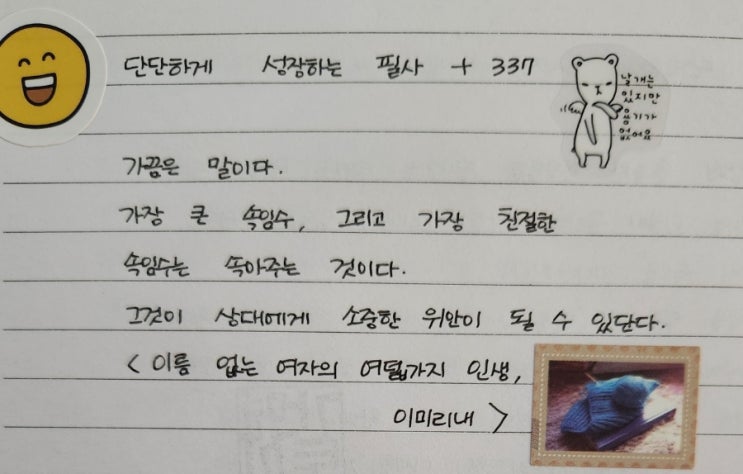 단단하게 성장하는 필사 + 337
날개는
있지만
용기가
없어요
가끔은 말이다.
가장 큰 속임수, 그리고 가장 친절한
속임수는 속아주는 것이다.
그것이 상대에게 소중한 위안이 될 수 있단다.
< 이름 없는 여자의 여덟가지 인생,
이미리내 >